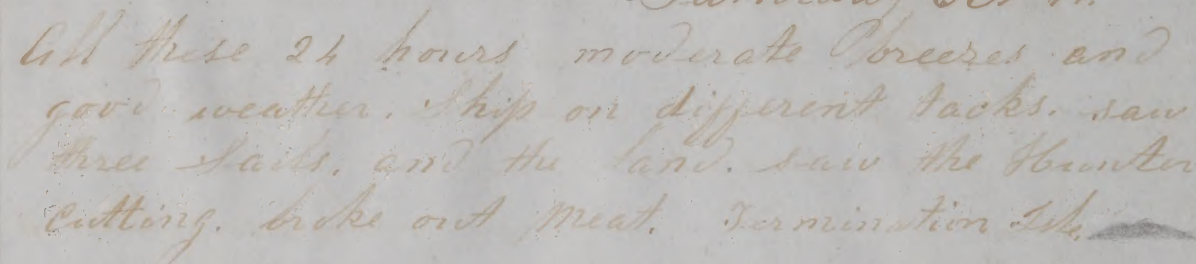 All these 24 hours moderate breezes and
good weather. Ship on different tacks. saw
three Sails. and the land. saw the Hunter
Cutting. broke out Meat. Termination Isle.